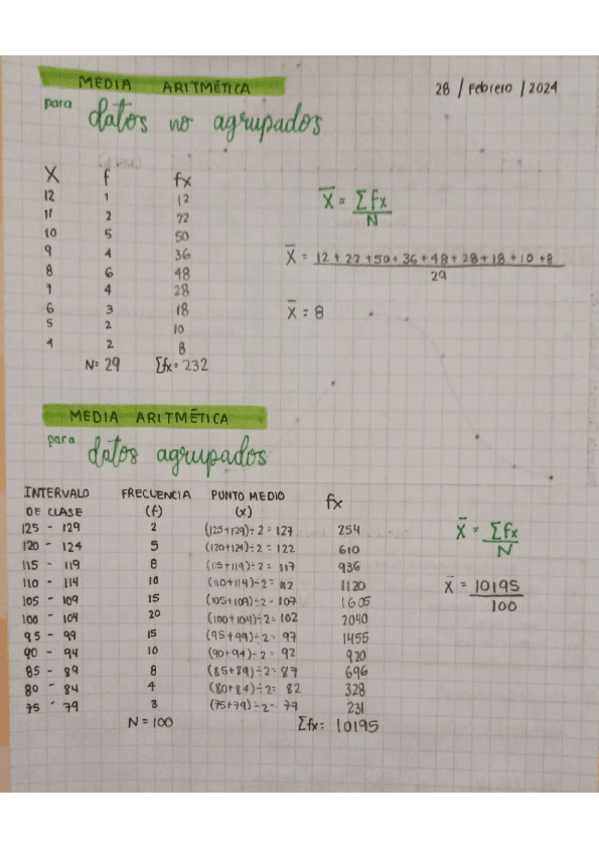 MEDIA ARITMÉTICA
28 / Febrero / 2024
para datos no agrupados
X f fx
12 1 12
11 2 22
10 5 50
9 4 36
8 6 48
7 4 28
6 3 18
5 2 10
4 2 8
N= 29 Σfx= 232
X̄ = Σfx
N
X̄ = 12 + 22 + 50 + 36 + 48 + 28 + 18 + 10 + 8
29
X̄ = 8
MEDIA ARITMÉTICA
para datos agrupados
INTERVALO FRECUENCIA PUNTO MEDIO fx
DE CLASE (f) (x)
125 - 129 2 (125+129)÷2 = 127 254
120 - 124 5 (120+124)÷2 = 122 610
115 - 119 8 (115+119)÷2 = 117 936
110 - 114 10 (110+114)÷2 = 112 1120
105 - 109 15 (105+109)÷2 = 107 1605
100 - 104 20 (100+104)÷2 = 102 2040
95 - 99 15 (95+99)÷2 = 97 1455
90 - 94 10 (90+94)÷2 = 92 920
85 - 89 8 (85+89)÷2 = 87 696
80 - 84 4 (80+84)÷2 = 82 328
75 - 79 3 (75+79)÷2 = 79 231
N = 100 Σfx= 10195
X̄ = Σfx
N
X̄ = 10195
100